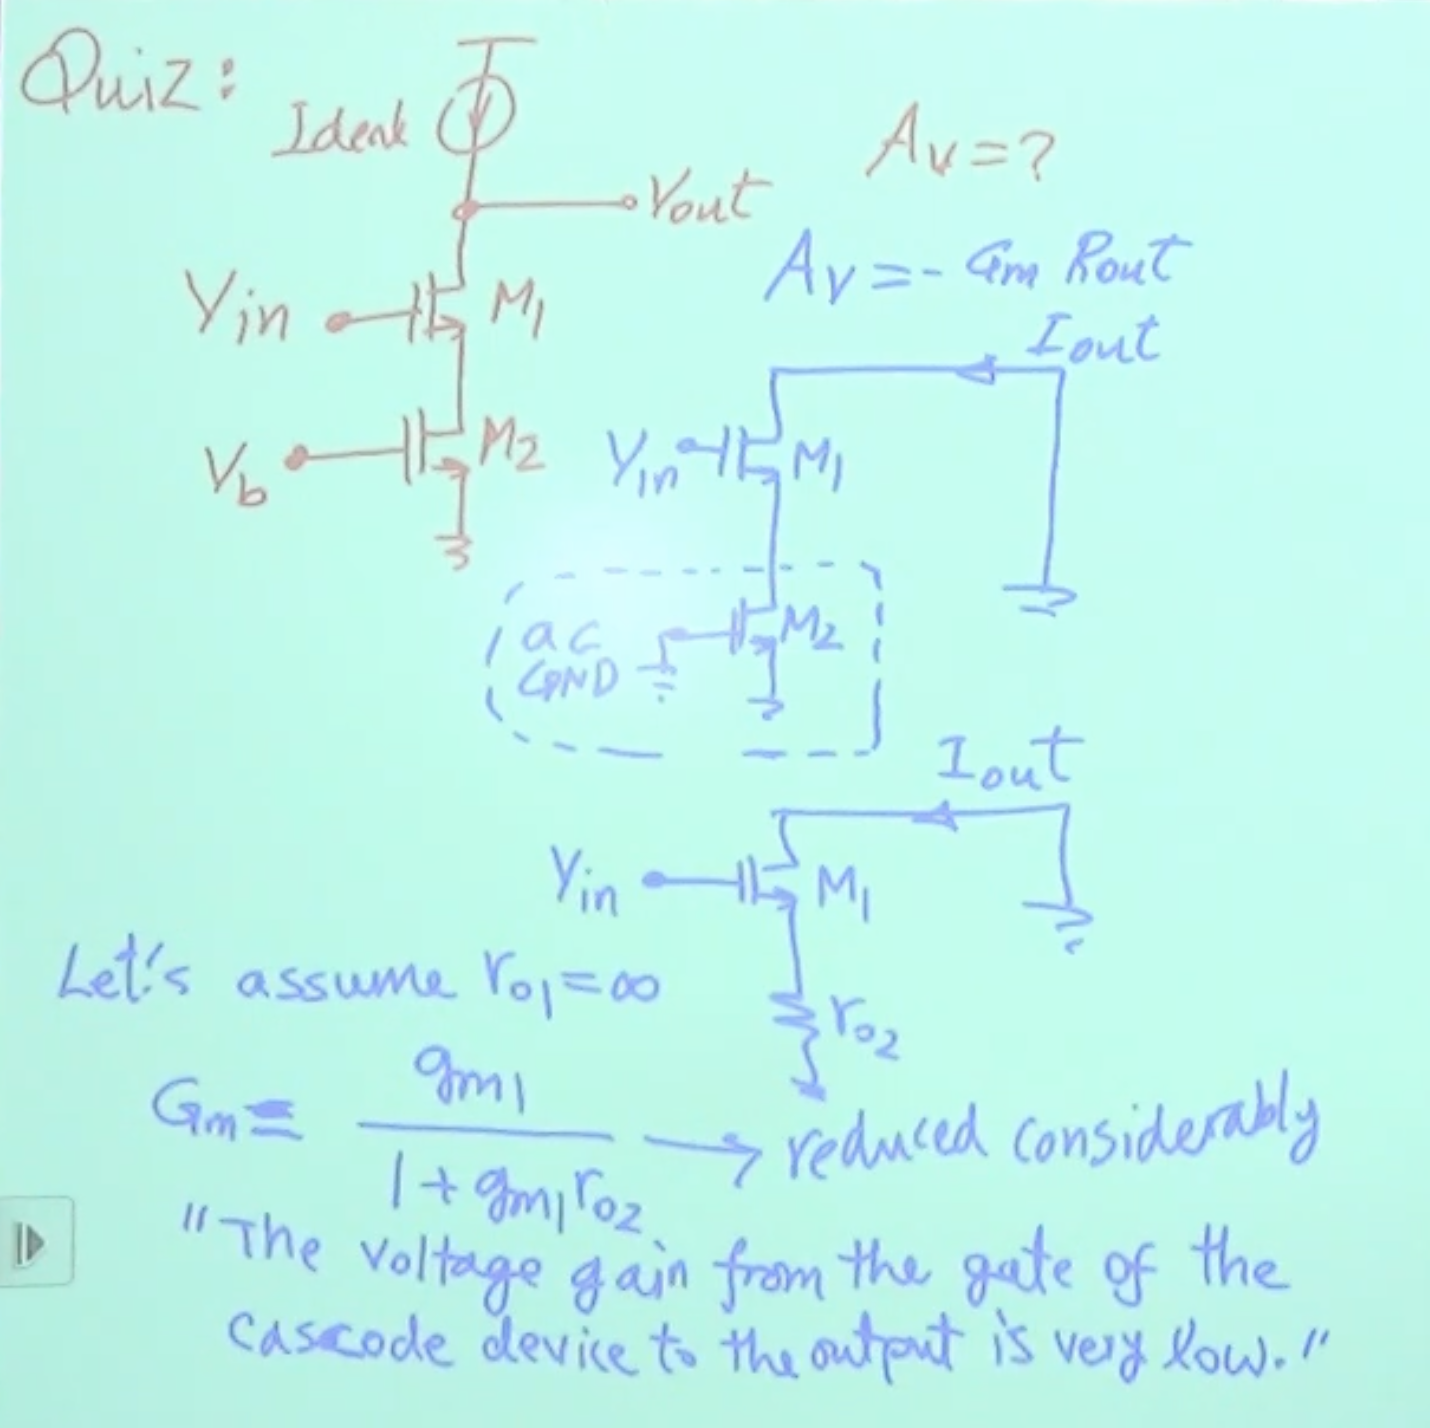 Quiz:
Ideal
Av=?
Vout
Av=- Gm Rout
Vin
M1
Iout
Vb
M2
Vin
M1
ac
GND
M2
Iout
Vin
M1
Let's assume ro1=∞
ro2
Gm= gm1 / 1+gm1ro2 → reduced considerably
"The voltage gain from the gate of the
cascode device to the output is very low."